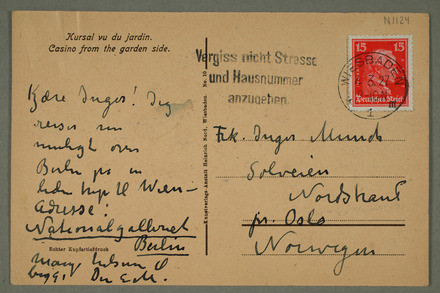 N1124
Kursal vu du jardin.
Casino from the garden side.
Vergiss nicht Strasse
und Hausnummer
anzugeben
15 15
Deutsches Reich
WIESBADEN
1
Kjære Inger! Jeg
reiser nu
muligt over
Berlin
til Wien –
Adresse:
Nationalgalleriet
Berlin
Mang hilsen
Din E.M.
Echter Kupfertiefdruck
Kunstverlags-Anstalt Heinrich Nord, Wiesbaden No. 10
Frk. Inger Munch
Solveien
Nordstrand
pr. Oslo
Norwegen